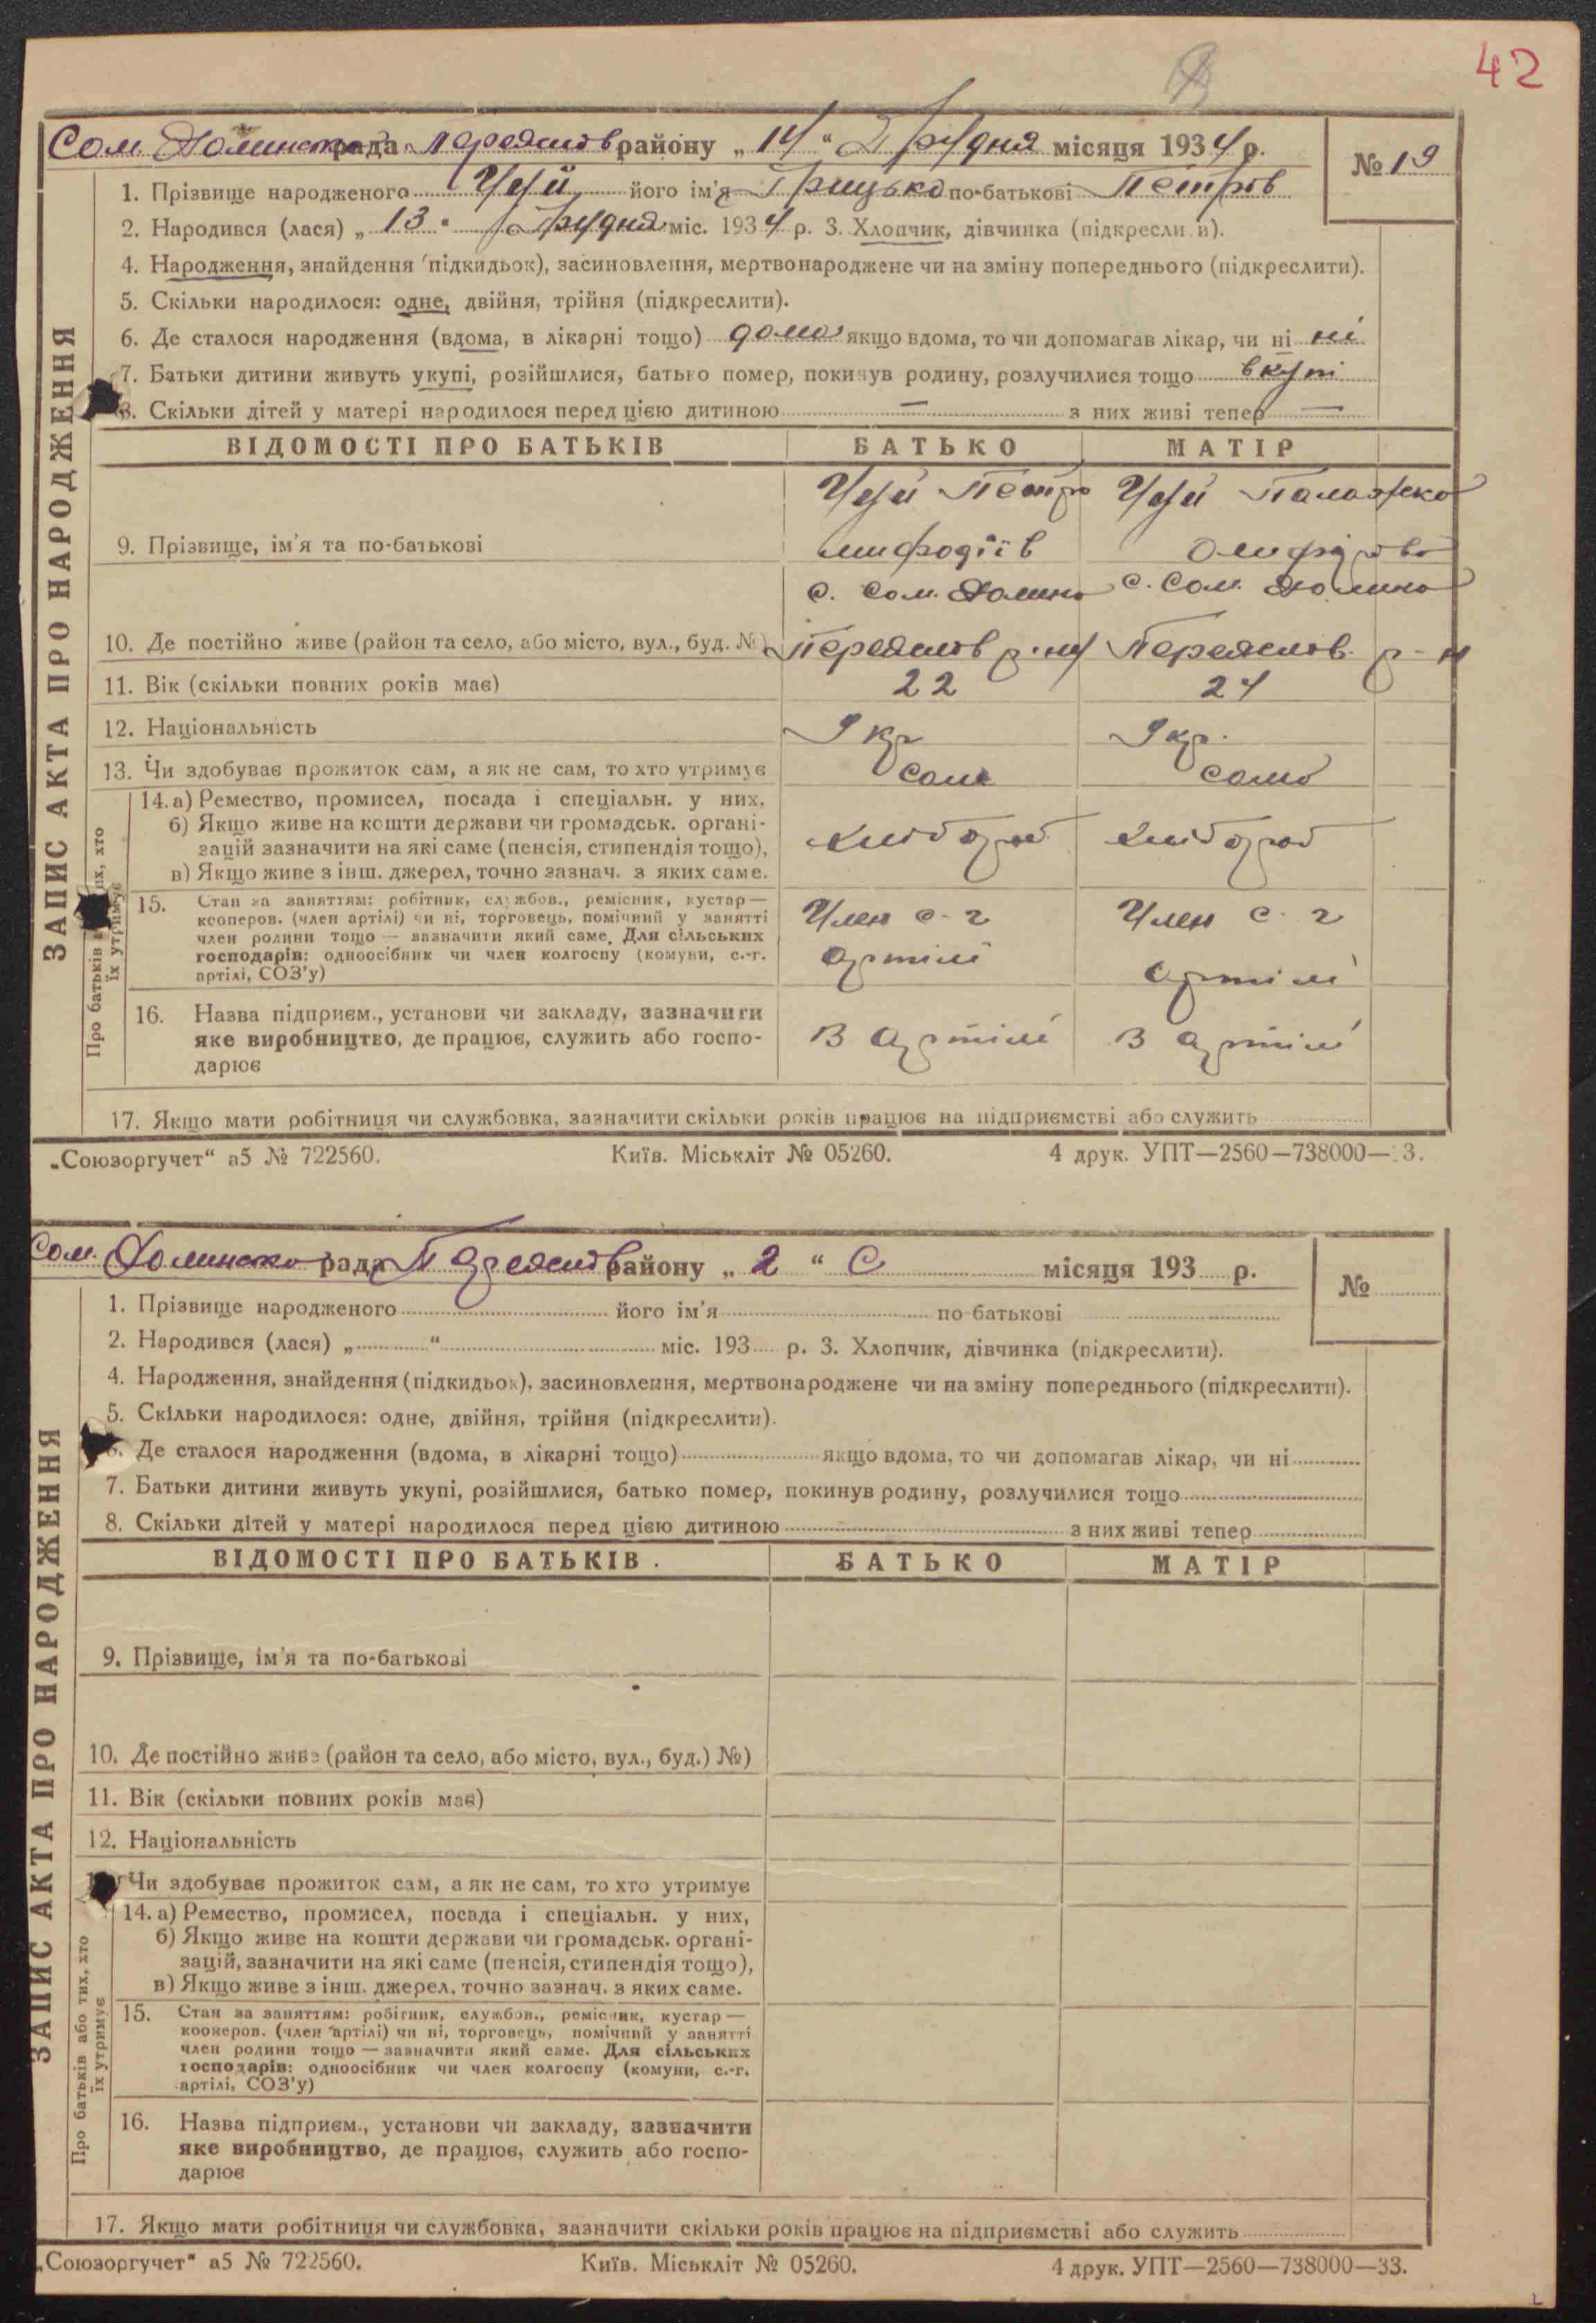 42
Сом. Долинська рада Переяслов району „ 14 “ Грудня місяця 1934 р.
№ 19
1. Прізвище народженого Чуй його ім'я Грицько по-батькові Петров
2. Народився (лася) „ 13 “ Грудня міс. 1934 р. 3. Хлопчик, дівчинка (підкреслити).
4. Народження, знайдення (підкидьок), засиновлення, мертвонароджене чи на зміну попереднього (підкреслити).
5. Скільки народилося: одне, двійня, трійня (підкреслити).
6. Де сталося народження (вдома, в лікарні тощо) дома якщо вдома, то чи допомагав лікар, чи ні ні
7. Батьки дитини живуть укупі, розійшлися, батько помер, покинув родину, розлучилися тощо вкупі
8. Скільки дітей у матері народилося перед цією дитиною — з них живі тепер —
ЗАПИС АКТА ПРО НАРОДЖЕННЯ
ВІДОМОСТІ ПРО БАТЬКІВ БАТЬКО МАТІР
Чуй Петро Чуй Палажка
9. Прізвище, ім'я та по-батькові мифодіїв
с. Сом. Долина с. Сом. Долина
10. Де постійно живе (район та село, або місто, вул., буд. №) Переяслов р-н Переяслов. р-н
11. Вік (скільки повних років має) 22 24
12. Національність Укр Укр.
13. Чи здобуває прожиток сам, а як не сам, то хто утримує сам сама
14. а) Ремество, промисел, посада і спеціальн. у них,
б) Якщо живе на кошти держави чи громадськ. органі-
зацій зазначити на які саме (пенсія, стипендія тощо), хлібороб хлібороб
в) Якщо живе з інш. джерел, точно зазнач. з яких саме.
Про батьків або тих, хто
їх утримує
15. Стан за заняттям: робітник, службов., ремісник, кустар —
кооперов. (член артілі) чи ні, торговець, помічний у занятті Член с-г Член с-г
член родини тощо — зазначити який саме. Для сільських
господарів: одноосібник чи член колгоспу (комуни, с.-г. артілі артілі
артілі, СОЗ'у)
16. Назва підприєм., установи чи закладу, зазначити
яке виробництво, де працює, служить або госпо- В артілі В артілі
дарює
17. Якщо мати робітниця чи службовка, зазначити скільки років працює на підприємстві або служить
„Союзоргучет“ а5 № 722560. Київ. Міськліт № 05260. 4 друк. УПТ—2560—738000—33.
Сом. Долинська рада Переяслов району „ 2 “ С місяця 193 р.
№
1. Прізвище народженого його ім'я по-батькові
2. Народився (лася) „ “ міс. 193 р. 3. Хлопчик, дівчинка (підкреслити).
4. Народження, знайдення (підкидьок), засиновлення, мертвонароджене чи на зміну попереднього (підкреслити).
5. Скільки народилося: одне, двійня, трійня (підкреслити).
6. Де сталося народження (вдома, в лікарні тощо) якщо вдома, то чи допомагав лікар, чи ні
7. Батьки дитини живуть укупі, розійшлися, батько помер, покинув родину, розлучилися тощо
8. Скільки дітей у матері народилося перед цією дитиною з них живі тепер
ЗАПИС АКТА ПРО НАРОДЖЕННЯ
ВІДОМОСТІ ПРО БАТЬКІВ. БАТЬКО МАТІР
9. Прізвище, ім'я та по-батькові
10. Де постійно живе (район та село, або місто, вул., буд.) №)
11. Вік (скільки повних років має)
12. Національність
Чи здобуває прожиток сам, а як не сам, то хто утримує
14. а) Ремество, промисел, посада і спеціальн. у них,
б) Якщо живе на кошти держави чи громадськ. органі-
зацій, зазначити на які саме (пенсія, стипендія тощо),
в) Якщо живе з інш. джерел, точно зазнач. з яких саме.
Про батьків або тих, хто
їх утримує
15. Стан за заняттям: робітник, службов., ремісник, кустар —
кооперов. (член артілі) чи ні, торговець, помічний у занятті
член родини тощо — зазначити який саме. Для сільських
господарів: одноосібник чи член колгоспу (комуни, с.-г.
артілі, СОЗ'у)
16. Назва підприєм., установи чи закладу, зазначити
яке виробництво, де працює, служить або госпо-
дарює
17. Якщо мати робітниця чи службовка, зазначити скільки років працює на підприємстві або служить
„Союзоргучет“ а5 № 722560. Київ. Міськліт № 05260. 4 друк. УПТ—2560—738000—33.